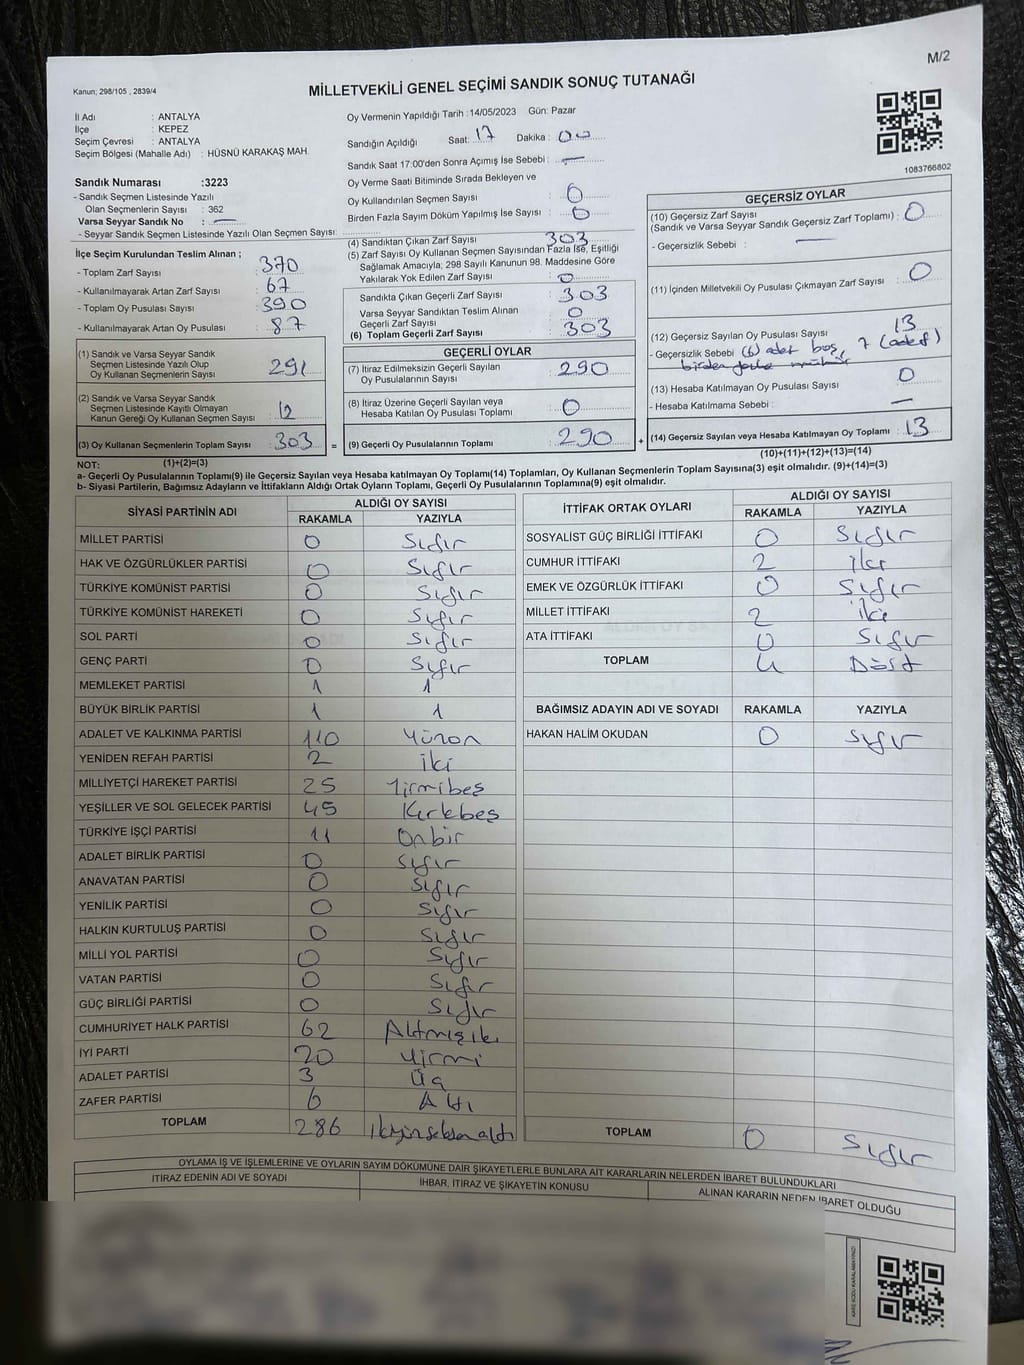 M/2
Kanun; 298/105 , 2839/4
MİLLETVEKİLİ GENEL SEÇİMİ SANDIK SONUÇ TUTANAĞI
İl Adı : ANTALYA
İlçe : KEPEZ
Seçim Çevresi : ANTALYA
Seçim Bölgesi (Mahalle Adı) : HÜSNÜ KARAKAŞ MAH.
Sandık Numarası :3223
- Sandık Seçmen Listesinde Yazılı
Olan Seçmenlerin Sayısı : 362
Varsa Seyyar Sandık No : —
- Seyyar Sandık Seçmen Listesinde Yazılı Olan Seçmen Sayısı:
İlçe Seçim Kurulundan Teslim Alınan ;
- Toplam Zarf Sayısı : 370
- Kullanılmayarak Artan Zarf Sayısı : 67
- Toplam Oy Pusulası Sayısı : 390
- Kullanılmayarak Artan Oy Pusulası : 87
(1) Sandık ve Varsa Seyyar Sandık
Seçmen Listesinde Yazılı Olup
Oy Kullanan Seçmenlerin Sayısı : 291
(2) Sandık ve Varsa Seyyar Sandık
Seçmen Listesinde Kayıtlı Olmayan
Kanun Gereği Oy Kullanan Seçmen Sayısı : 12
(3) Oy Kullanan Seçmenlerin Toplam Sayısı : 303 =
(1)+(2)=(3)
Oy Vermenin Yapıldığı Tarih :14/05/2023 Gün: Pazar
Sandığın Açıldığı Saat: 17 Dakika : 00
Sandık Saat 17:00'den Sonra Açımış İse Sebebi : —
Oy Verme Saati Bitiminde Sırada Bekleyen ve
Oy Kullandırılan Seçmen Sayısı : 0
Birden Fazla Sayım Döküm Yapılmış İse Sayısı : 0
(4) Sandıktan Çıkan Zarf Sayısı : 303
(5) Zarf Sayısı Oy Kullanan Seçmen Sayısından Fazla İse, Eşitliği
Sağlamak Amacıyla; 298 Sayılı Kanunun 98. Maddesine Göre
Yakılarak Yok Edilen Zarf Sayısı : 0
Sandıkta Çıkan Geçerli Zarf Sayısı : 303
Varsa Seyyar Sandıktan Teslim Alınan
Geçerli Zarf Sayısı : 0
(6) Toplam Geçerli Zarf Sayısı : 303
GEÇERLİ OYLAR
(7) İtiraz Edilmeksizin Geçerli Sayılan
Oy Pusulalarının Sayısı : 290
(8) İtiraz Üzerine Geçerli Sayılan veya
Hesaba Katılan Oy Pusulası Toplamı : 0
(9) Geçerli Oy Pusulalarının Toplamı : 290 +
1083766802
GEÇERSİZ OYLAR
(10) Geçersiz Zarf Sayısı : 0
(Sandık ve Varsa Seyyar Sandık Geçersiz Zarf Toplamı)
- Geçersizlik Sebebi : —
(11) İçinden Milletvekili Oy Pusulası Çıkmayan Zarf Sayısı : 0
(12) Geçersiz Sayılan Oy Pusulası Sayısı : 13
- Geçersizlik Sebebi (6) adet boş, 7 (adet)
birden fazla mühür
(13) Hesaba Katılmayan Oy Pusulası Sayısı : 0
- Hesaba Katılmama Sebebi : —
(14) Geçersiz Sayılan veya Hesaba Katılmayan Oy Toplamı : 13
(10)+(11)+(12)+(13)=(14)
NOT:
a- Geçerli Oy Pusulalarının Toplamı(9) ile Geçersiz Sayılan veya Hesaba katılmayan Oy Toplamı(14) Toplamları, Oy Kullanan Seçmenlerin Toplam Sayısına(3) eşit olmalıdır. (9)+(14)=(3)
b- Siyasi Partilerin, Bağımsız Adayların ve İttifakların Aldığı Ortak Oyların Toplamı, Geçerli Oy Pusulalarının Toplamına(9) eşit olmalıdır.
SİYASİ PARTİNİN ADI ALDIĞI OY SAYISI
RAKAMLA YAZIYLA
MİLLET PARTİSİ 0 Sıfır
HAK VE ÖZGÜRLÜKLER PARTİSİ 0 Sıfır
TÜRKİYE KOMÜNİST PARTİSİ 0 Sıfır
TÜRKİYE KOMÜNİST HAREKETİ 0 Sıfır
SOL PARTİ 0 Sıfır
GENÇ PARTİ 0 Sıfır
MEMLEKET PARTİSİ 1 1
BÜYÜK BİRLİK PARTİSİ 1 1
ADALET VE KALKINMA PARTİSİ 110 Yüzon
YENİDEN REFAH PARTİSİ 2 İki
MİLLİYETÇİ HAREKET PARTİSİ 25 Yirmibeş
YEŞİLLER VE SOL GELECEK PARTİSİ 45 Kırkbeş
TÜRKİYE İŞÇİ PARTİSİ 11 Onbir
ADALET BİRLİK PARTİSİ 0 Sıfır
ANAVATAN PARTİSİ 0 Sıfır
YENİLİK PARTİSİ 0 Sıfır
HALKIN KURTULUŞ PARTİSİ 0 Sıfır
MİLLİ YOL PARTİSİ 0 Sıfır
VATAN PARTİSİ 0 Sıfır
GÜÇ BİRLİĞİ PARTİSİ 0 Sıfır
CUMHURİYET HALK PARTİSİ 62 Altmışiki
İYİ PARTİ 20 Yirmi
ADALET PARTİSİ 3 Üç
ZAFER PARTİSİ 6 Altı
TOPLAM 286 İkiyüzseksenaltı
İTTİFAK ORTAK OYLARI ALDIĞI OY SAYISI
RAKAMLA YAZIYLA
SOSYALİST GÜÇ BİRLİĞİ İTTİFAKI 0 Sıfır
CUMHUR İTTİFAKI 2 İki
EMEK VE ÖZGÜRLÜK İTTİFAKI 0 Sıfır
MİLLET İTTİFAKI 2 İki
ATA İTTİFAKI 0 Sıfır
TOPLAM 4 Dört
BAĞIMSIZ ADAYIN ADI VE SOYADI RAKAMLA YAZIYLA
HAKAN HALİM OKUDAN 0 Sıfır
TOPLAM 0 Sıfır
OYLAMA İŞ VE İŞLEMLERİNE VE OYLARIN SAYIM DÖKÜMÜNE DAİR ŞİKAYETLERLE BUNLARA AİT KARARLARIN NELERDEN İBARET BULUNDUKLARI
İTİRAZ EDENİN ADI VE SOYADI
İHBAR, İTİRAZ VE ŞİKAYETİN KONUSU
ALINAN KARARIN NEDEN İBARET OLDUĞU
KARE KODU KARALAMAYINIZ!